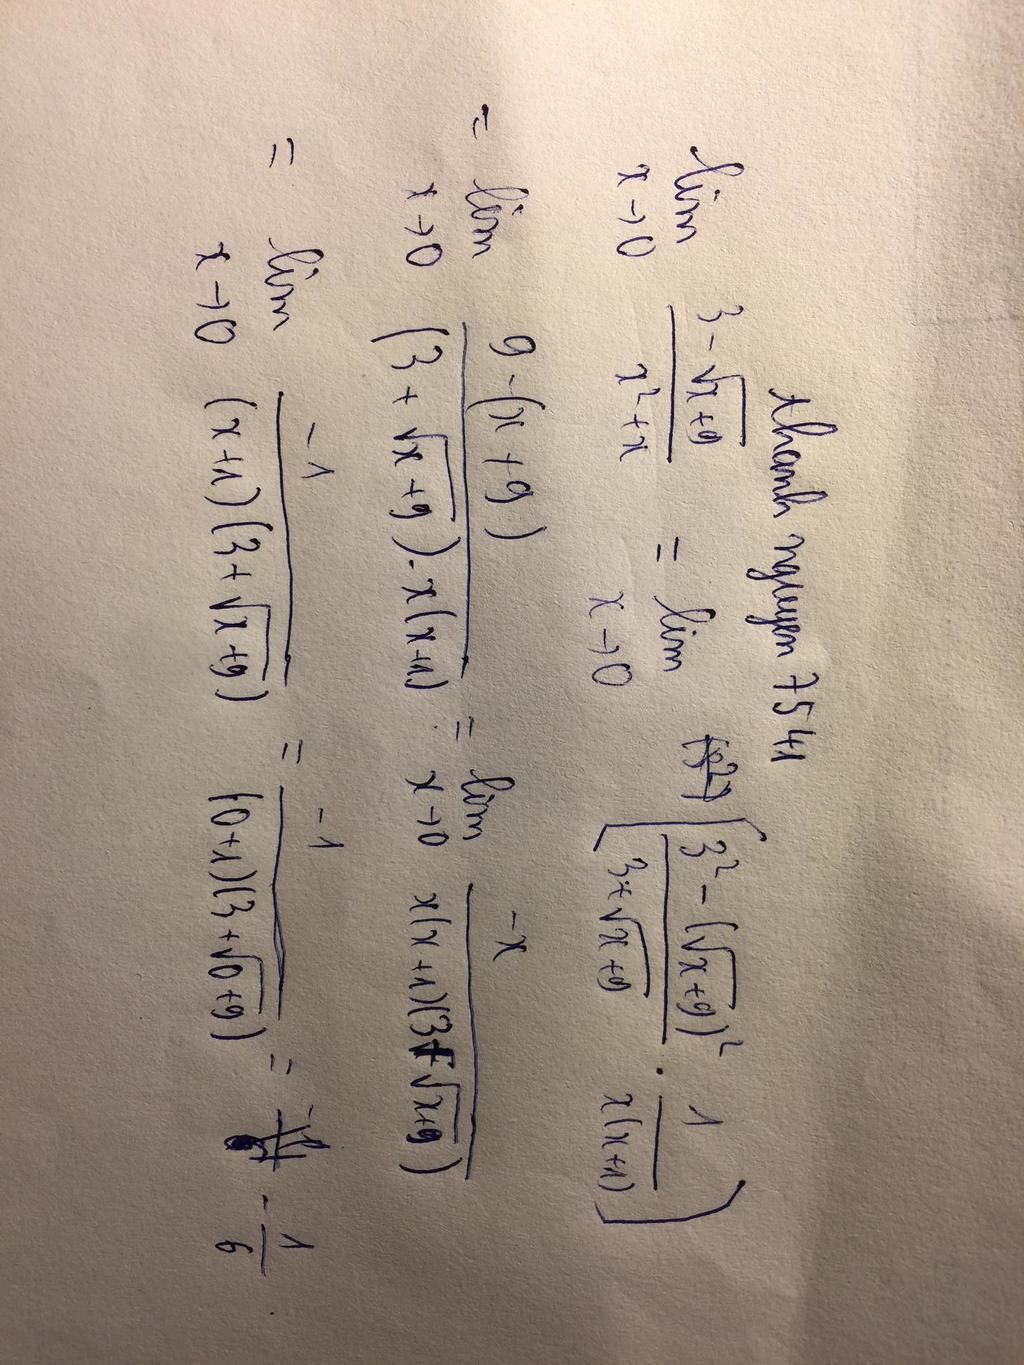 thanh nguyen 7541
lim x→0 (3-√(x+9))/(x²+x) = lim x→0 [(3²-(√(x+9))²)/(3+√(x+9)) · 1/(x(x+1))]
= lim x→0 (9-(x+9))/((3+√(x+9))·x(x+1)) = lim x→0 (-x)/(x(x+1)(3+√(x+9)))
= lim x→0 (-1)/((x+1)(3+√(x+9))) = (-1)/((0+1)(3+√(0+9))) = -1/6